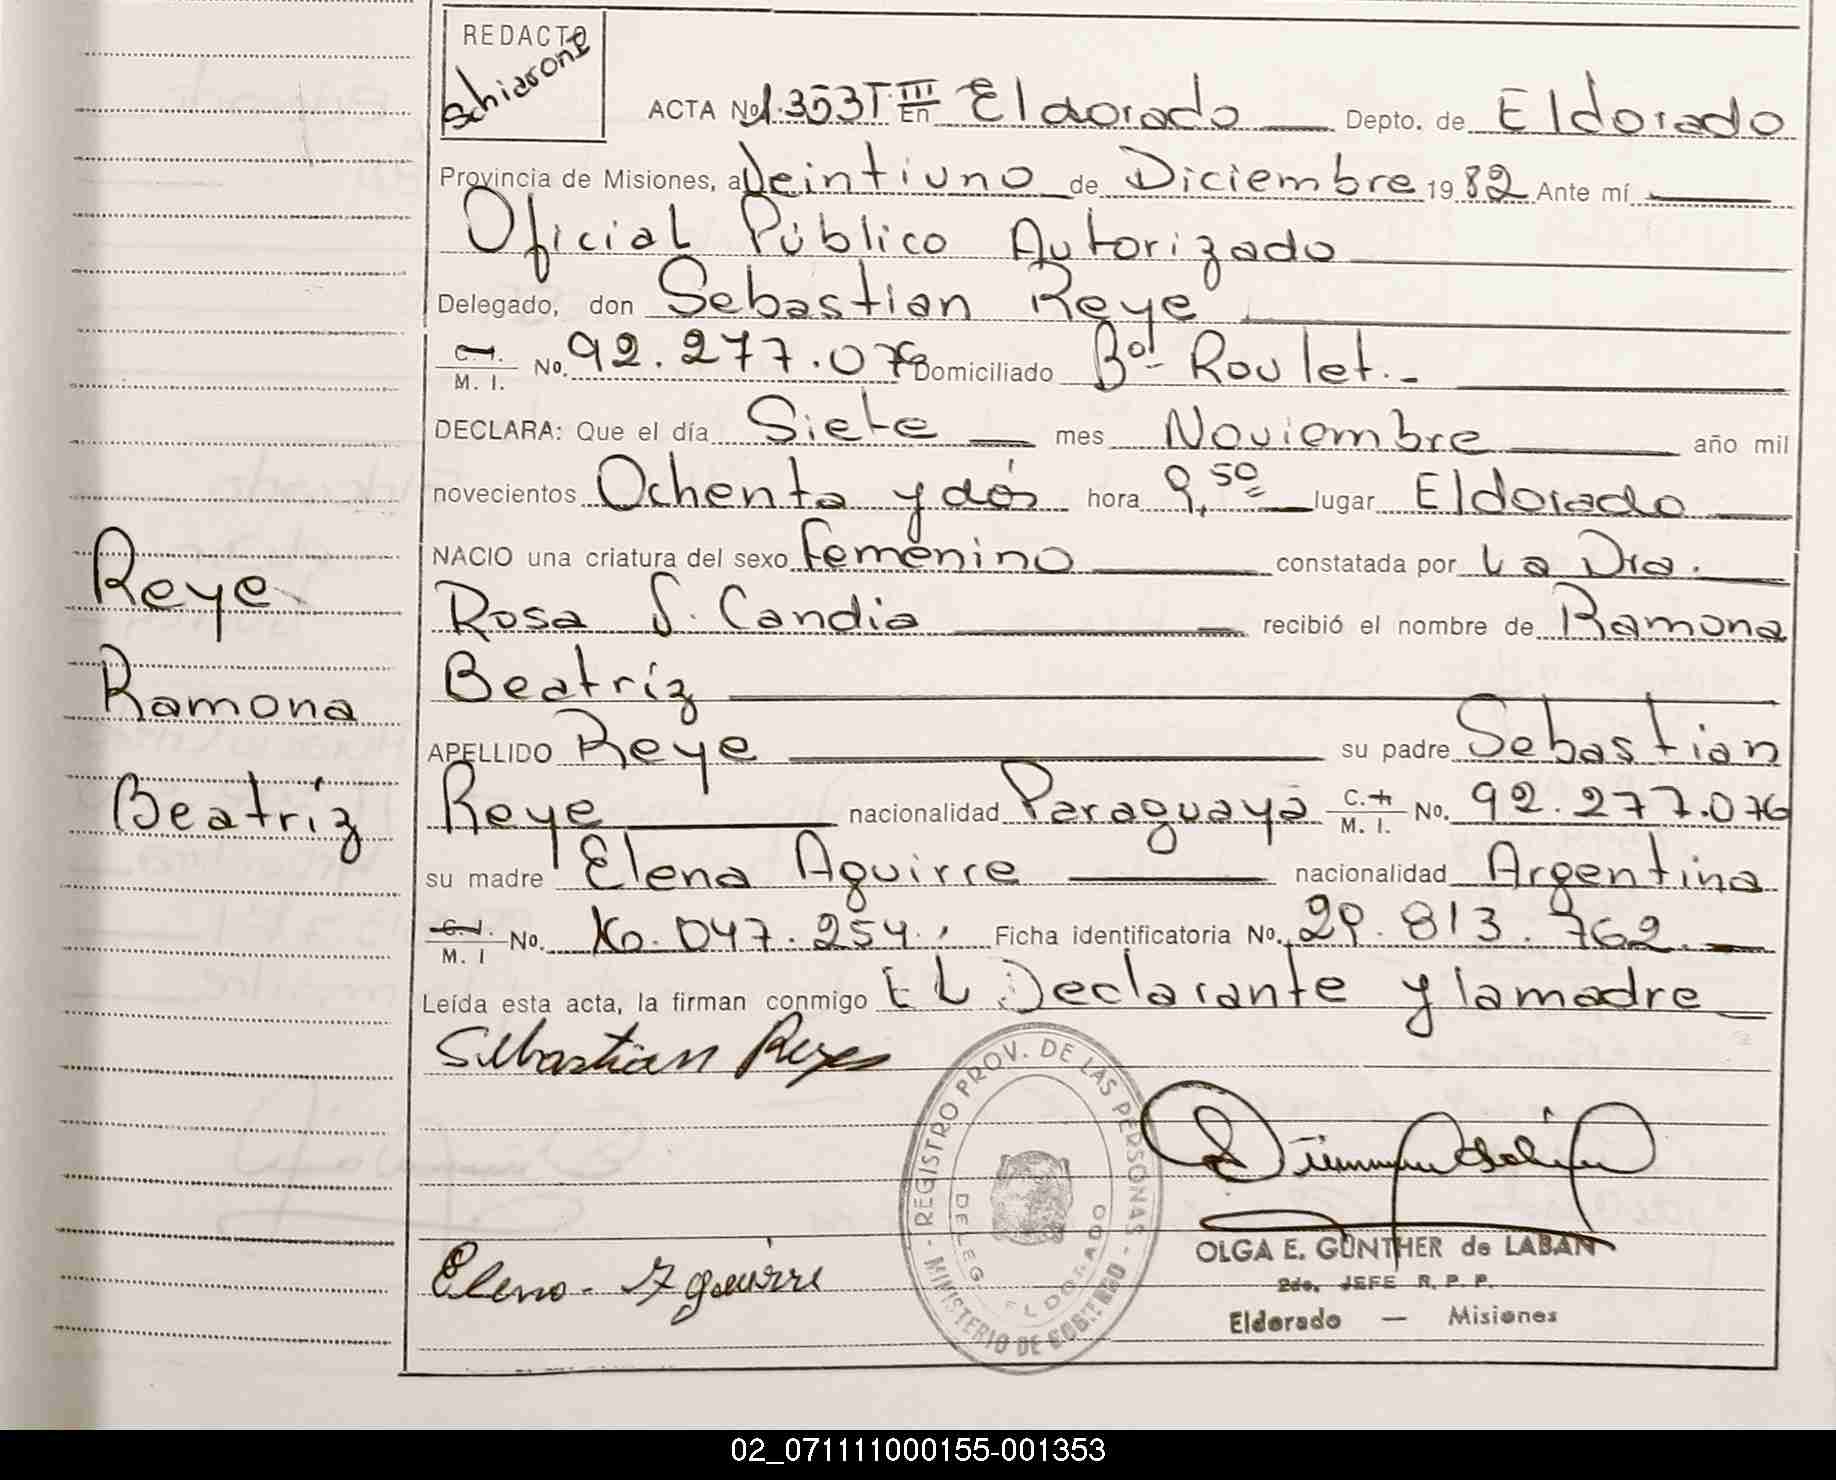 REDACTO
Schiarone
ACTA No 1.353 T III En Eldorado Depto. de Eldorado
Provincia de Misiones, a Veintiuno de Diciembre 19 82 Ante mí
Oficial Público Autorizado
Delegado, don Sebastian Reye
C.I. M. I. No. 92.277.076 Domiciliado Bº Roulet.-
DECLARA: Que el día Siete mes Noviembre año mil
novecientos Ochenta y dós hora 9,50 lugar Eldorado
NACIO una criatura del sexo Femenino constatada por La Dra.
Rosa S. Candia recibió el nombre de Ramona
Beatríz
APELLIDO Reye su padre Sebastian
Reye nacionalidad Paraguaya C.I. M. I. No. 92.277.076
su madre Elena Aguirre nacionalidad Argentina
C.I. M. I No. 10.047.254. Ficha identificatoria No. 29.813.762.
Leída esta acta, la firman conmigo EL Declarante y la madre
Reye
Ramona
Beatríz
Sebastian Reyes
Eleno - Aguirre
REGISTRO PROV. DE LAS PERSONAS - MINISTERIO DE GOBIERNO -
DELEG. ELDORADO
OLGA E. GÜNTHER de LABAN
2do. JEFE R. P. P.
Eldorado — Misiones
02_071111000155-001353